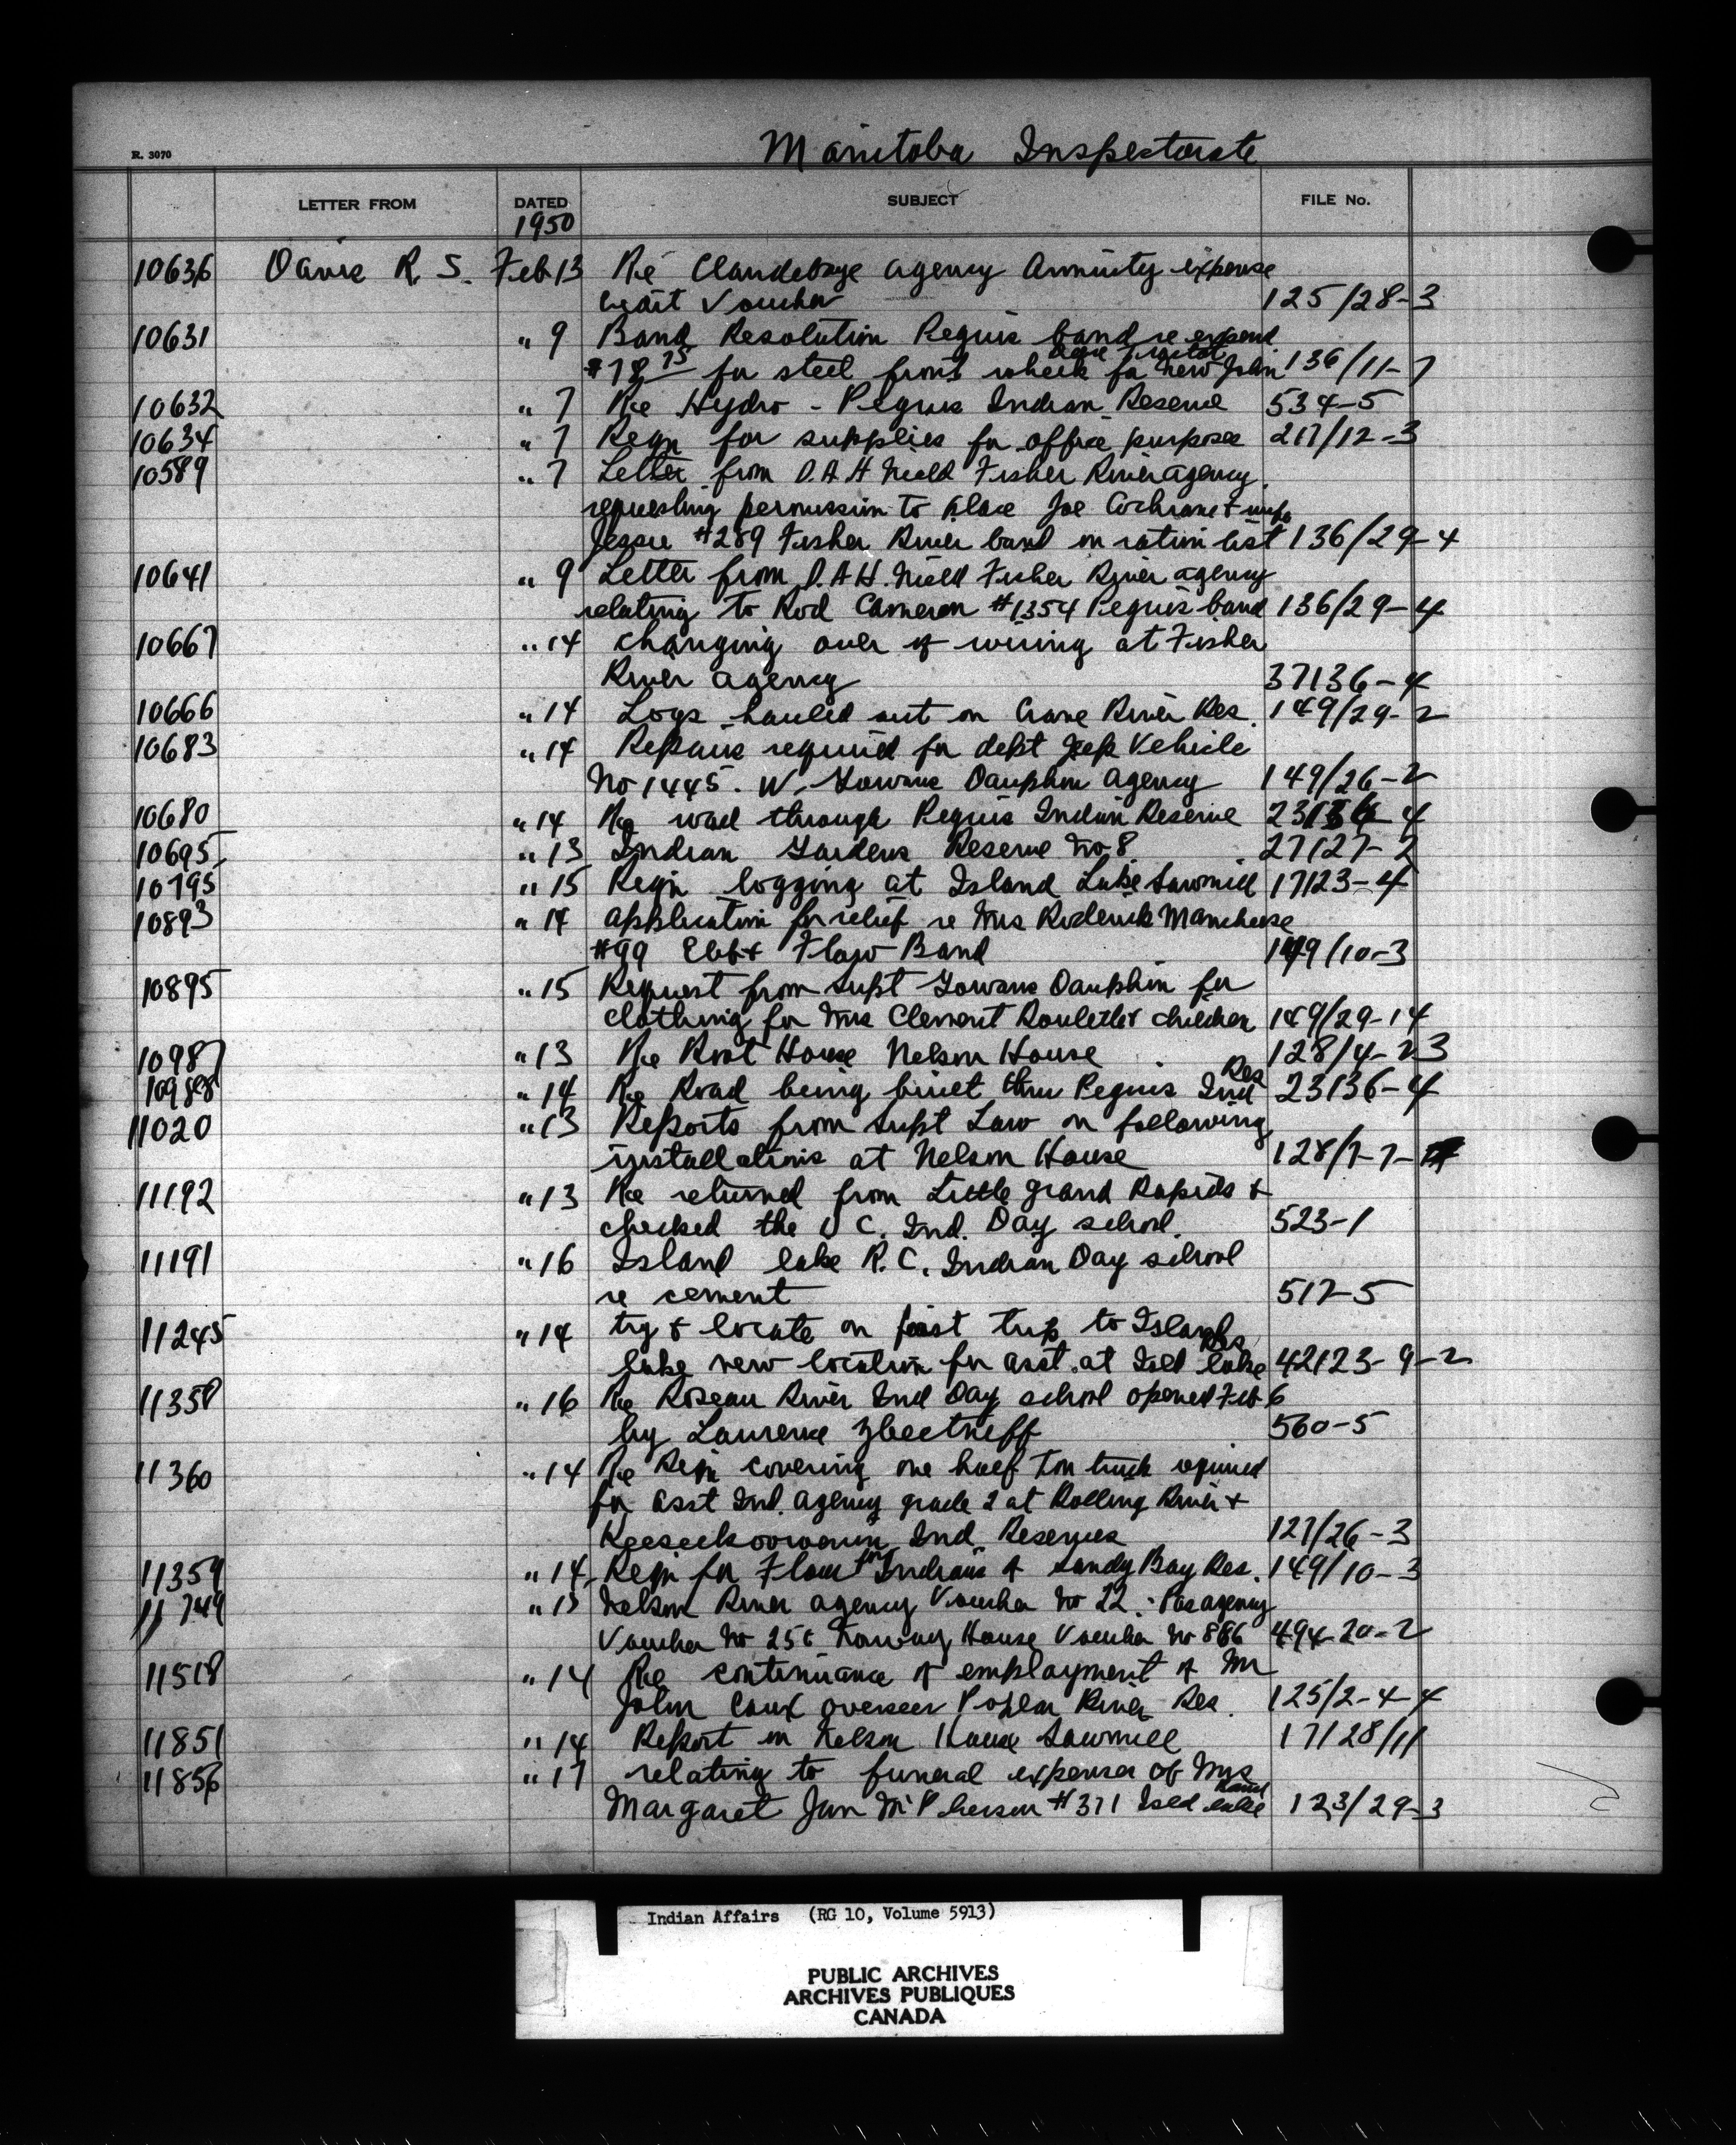 Manitoba Inspectorate
R. 3070
LETTER FROM DATED SUBJECT FILE No.
1950
10636 Davis R. S. Feb 13 Re Clandeboye agency Annuity expense
Voucher 125/28-3
10631 " 9 Band Resolution Peguis band re expend
$78 75 for steel front wheels for new John 136/11-7
10632 " 7 Re Hydro - Peguis Indian Reserve 534-5
10634 " 7 Reqn for supplies for office purposes 217/12-3
10589 " 7 Letter from D.A.H. Nield Fisher River agency
requesting permission to place Joe Cochrane & wife
Jessie #289 Fisher River band on ration list 136/29-4
10641 " 9 Letter from D.A.H. Nield Fisher River agency
relating to Rod Cameron #1354 Peguis band 136/29-4
10667 " 14 changing over of wiring at Fisher
River agency 37136-4
10666 " 14 Logs hauled out on Crane River Res. 149/29-2
10683 " 14 Repairs required for dept Jeep Vehicle
No 1445. W. Gowans Dauphin agency 149/26-2
10680 " 14 Re road through Peguis Indian Reserve 23136-4
10695 " 13 Indian Gardens Reserve No 8. 27127-2
10795 " 15 Reqn logging at Island Lake Sawmill 17123-4
10893 " 14 application for relief re Mrs Roderick
#99 Ebb & Flow Band 149/10-3
10895 " 15 Request from Supt Gowans Dauphin for
clothing for Mrs Clement Roulette & children 149/29-14
10987 " 13 Re Root House Nelson House 128/4-23
10988 " 14 Re Road being built thru Peguis Ind Res 23136-4
11020 " 13 Reports from Supt Law on following
installations at Nelson House 128/7-7-
11192 " 13 Re returned from Little Grand Rapids &
checked the U C. Ind. Day school. 523-1
11191 " 16 Island lake R. C. Indian Day school
re cement 517-5
11245 " 14 try & locate on first trip to Island
lake new location for asst. at Isld lake 42123-9-2
11358 " 16 Re Roseau River Ind Day school opened Feb 6
by Laurence 560-5
11360 " 14 Re Reqn covering one half ton truck required
for asst Ind. agency grade 2 at Rolling River &
Keeseekoowenin Ind Reserves 127/26-3
11359 " 14 Reqn for Flour for Indians of Sandy Bay Res. 149/10-3
11744 " 15 Nelson River agency Voucher No 22. Pas agency
Voucher No 25 & Norway House Voucher No 886 494-20-2
11518 " 14 Re continuance of employment of Mr
John overseer Poplar River Res. 125/2-4-4
11851 " 14 Report on Nelson House Sawmill 17128/11
11856 " 17 relating to funeral expenses of Mrs
Margaret Jun McPherson #371 Isld lake Band 123/29-3
Indian Affairs (RG 10, Volume 5913)
PUBLIC ARCHIVES
ARCHIVES PUBLIQUES
CANADA